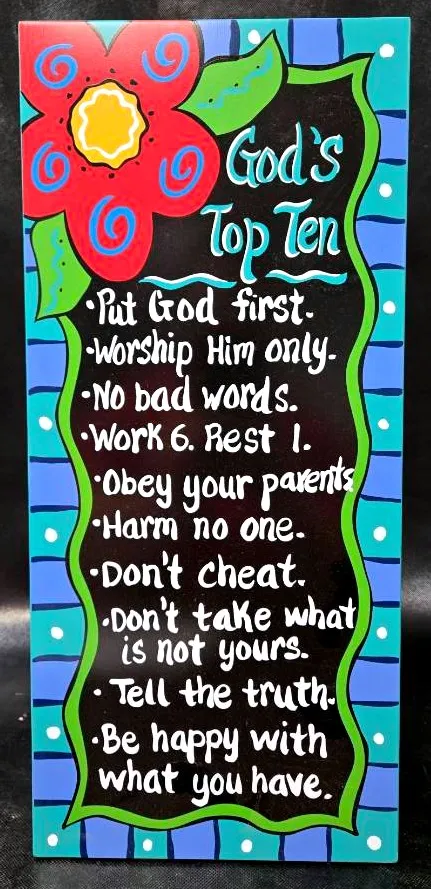 God's
Top Ten
•Put God first.
•Worship Him only.
•No bad words.
•Work 6. Rest 1.
•Obey your parents
•Harm no one.
•Don't cheat.
•Don't take what
is not yours.
• Tell the truth.
•Be happy with
what you have.